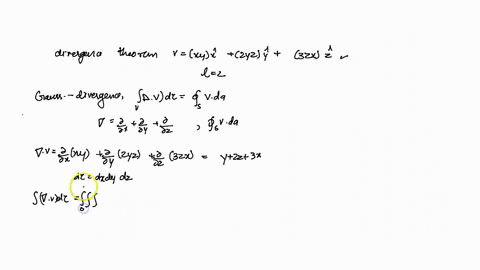 divergence theorem v = (xy)x̂ + (2yz)ŷ + (3zx)ẑ ✓
l=2
Gauss-divergence, ∫_v (∇.V)dτ = ∮_S V.da
∇ = ∂/∂x + ∂/∂y + ∂/∂z , ∮_S V.da
∇.V = ∂/∂x (xy) + ∂/∂y (2yz) + ∂/∂z (3zx) = y+2z+3x
dτ = dx dy dz
∫(∇.v)dτ = ∫∫∫
0